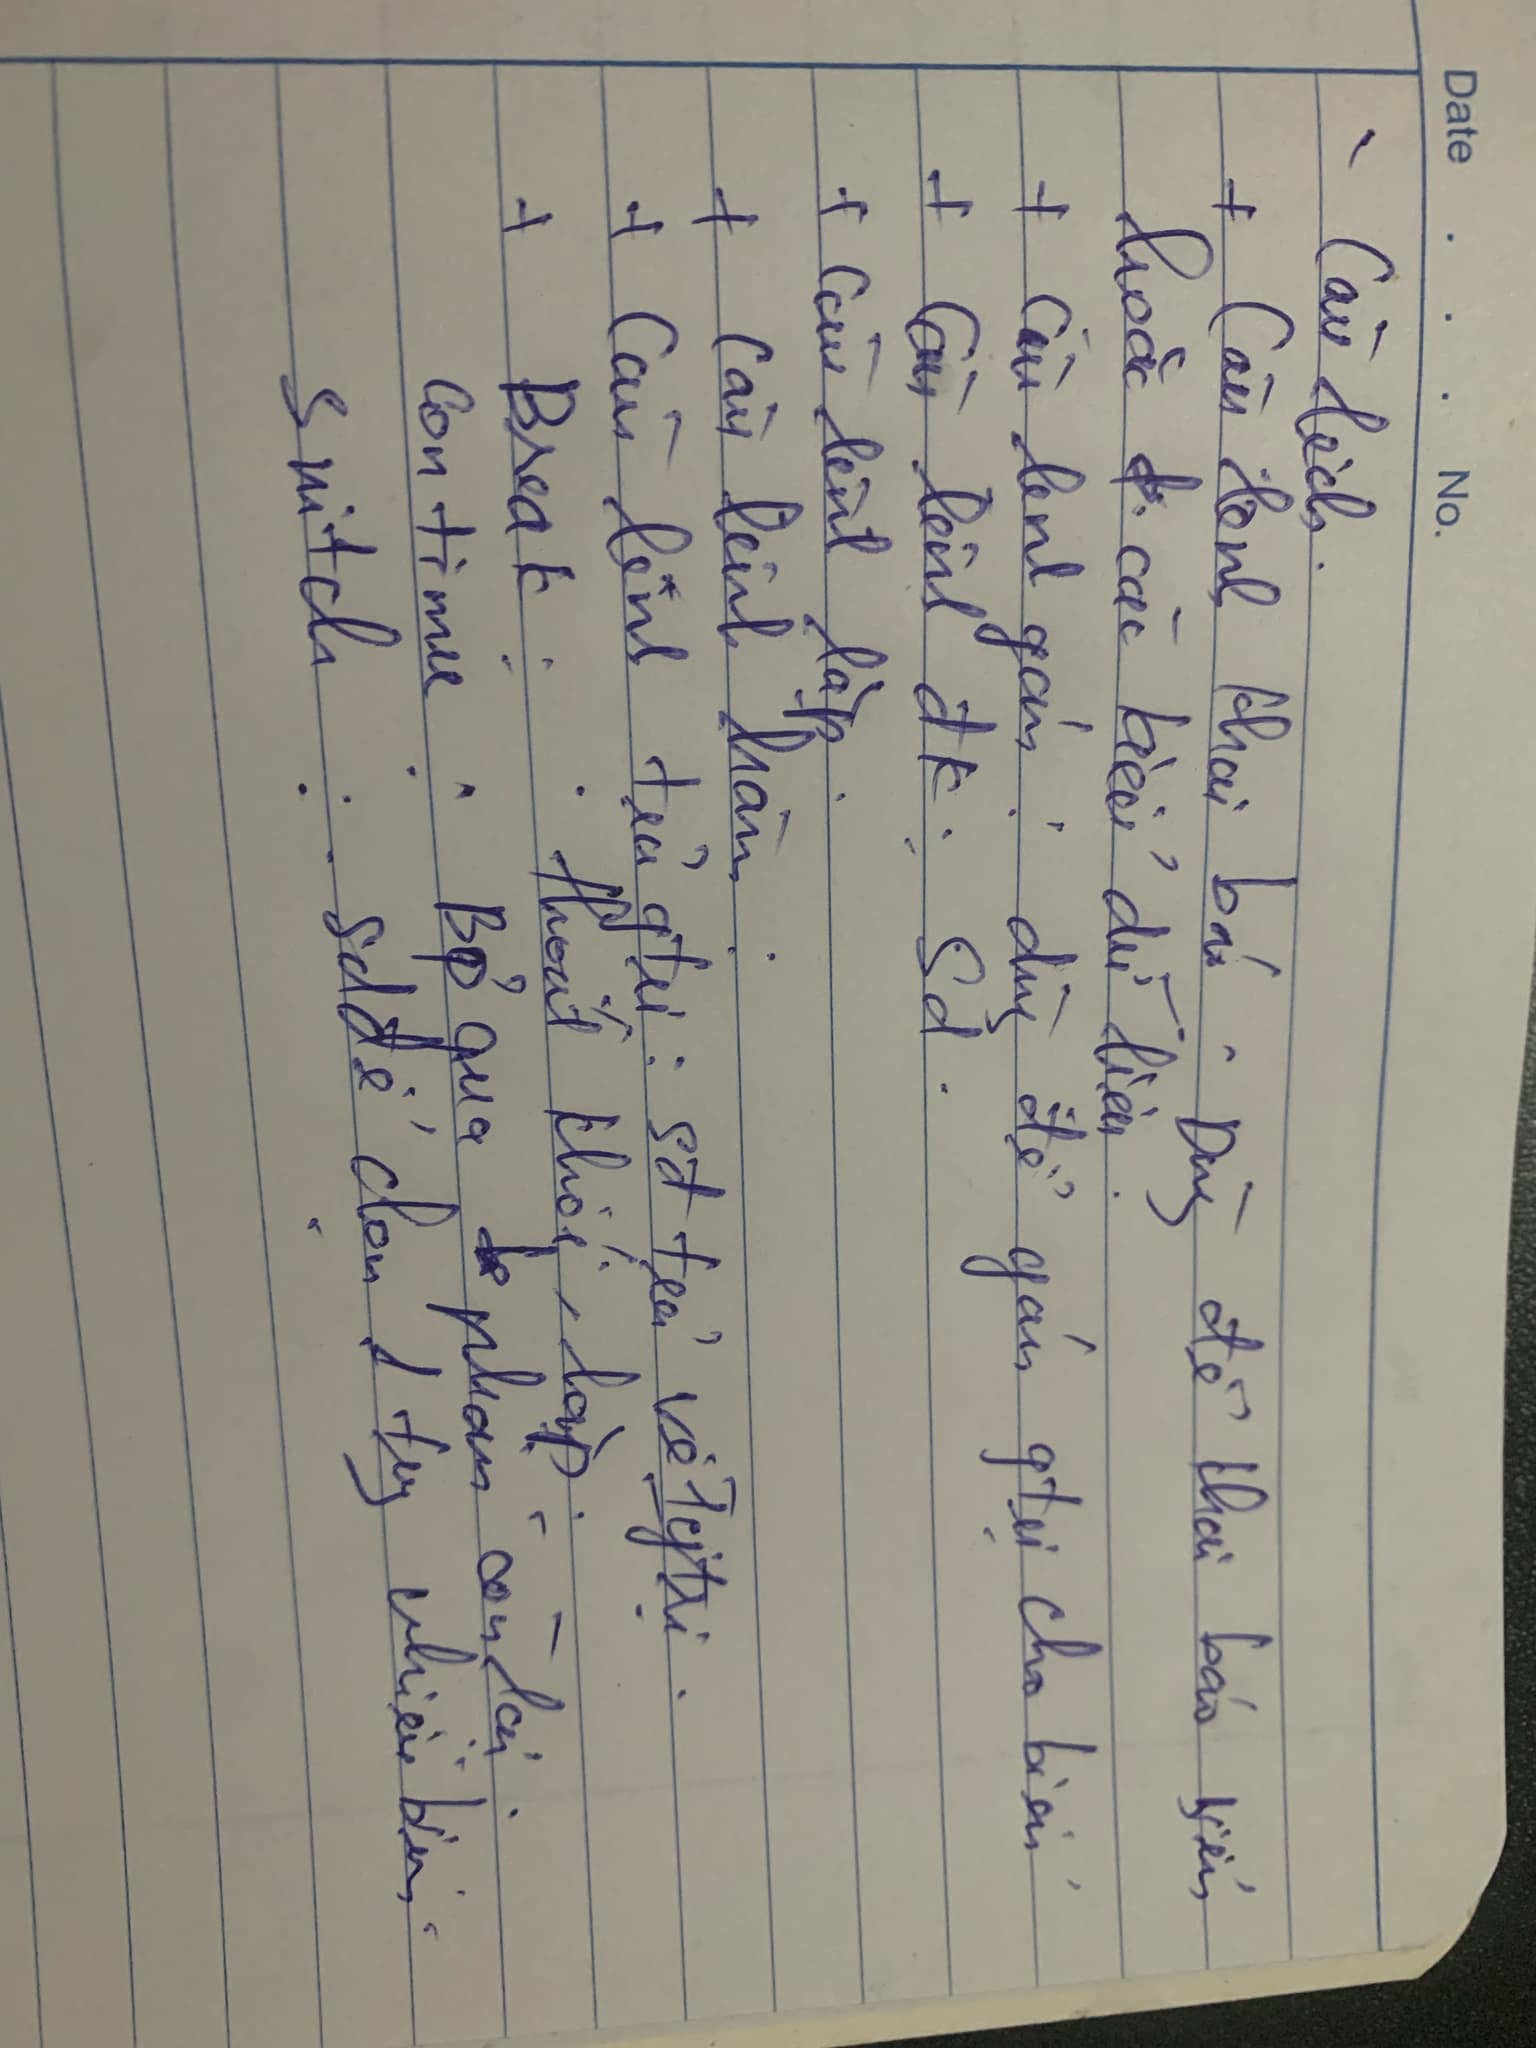 Date . . . . No.
- Câu lệnh.
+ Câu lệnh khai báo : Dùng để khai báo biến
hoặc các kiểu dữ liệu.
+ Câu lệnh gán : dùng để gán gtrị cho biến
+ Câu lệnh đk : Sd.
+ Câu lệnh lặp.
+ Câu lệnh hàm :
+ Câu lệnh trả gtrị : sd trả về 1 gtrị.
+ Break : . thoát khỏi lặp.
Continue : Bỏ qua phần còn lại.
Switch : sd để chọn 1 tuỳ nhiều biến.